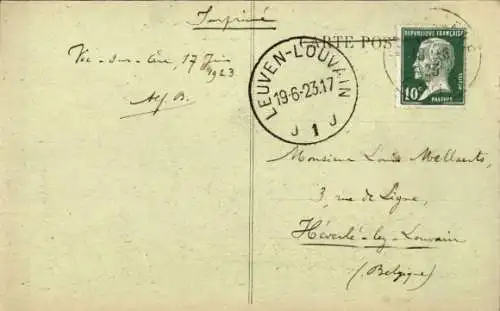 Imprimé
CARTE POS
Vic-sur-Cère, 17 Juin
1923
Alf. B.
LEUVEN-LOUVAIN
19-6-23.17
J 1 J
REPUBLIQUE FRANÇAISE
10c
PASTEUR
Monsieur Louis Mellaerts,
3, rue de Ligne,
Héverlé-lez-Louvain
(Belgique)